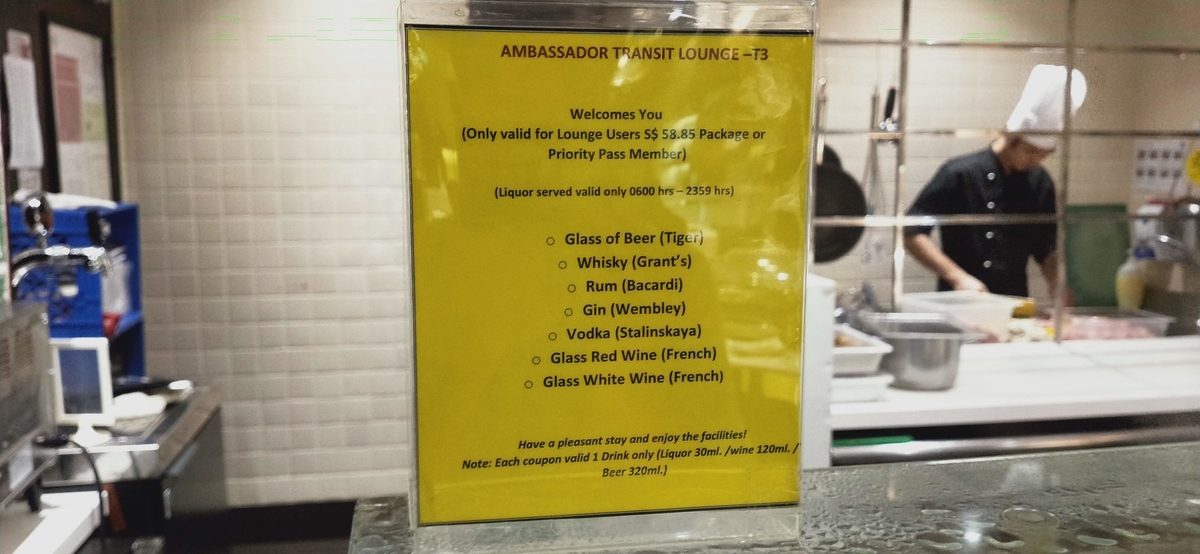 AMBASSADOR TRANSIT LOUNGE –T3
Welcomes You
(Only valid for Lounge Users S$ 58.85 Package or
Priority Pass Member)
(Liquor served valid only 0600 hrs – 2359 hrs)
○ Glass of Beer (Tiger)
○ Whisky (Grant's)
○ Rum (Bacardi)
○ Gin (Wembley)
○ Vodka (Stalinskaya)
○ Glass Red Wine (French)
○ Glass White Wine (French)
Have a pleasant stay and enjoy the facilities!
Note: Each coupon valid 1 Drink only (Liquor 30ml. /wine 120ml. /
Beer 320ml.)